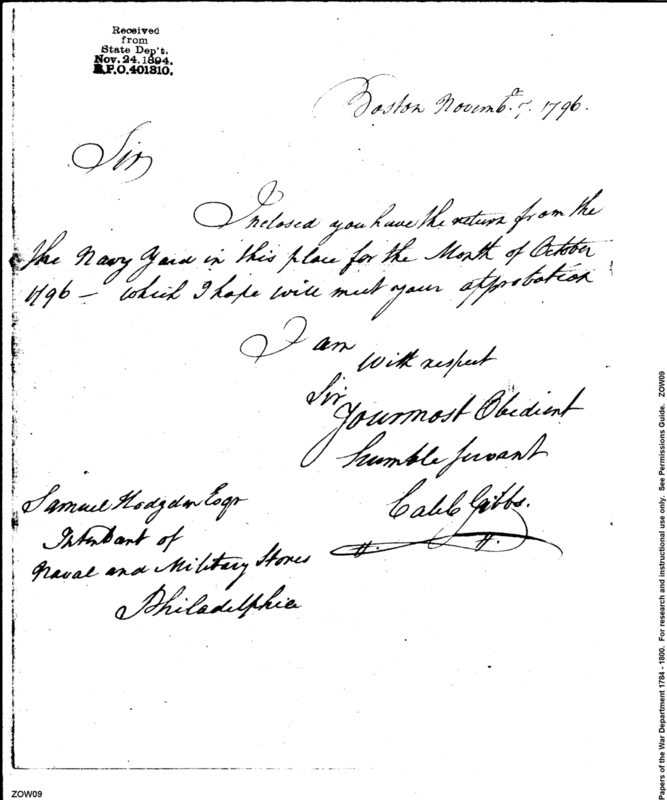 Received
from
State Dep't.
Nov. 24. 1894.
R.P.O. 401310.
Boston Novemb.r 7. 1796.
Sir
Inclosed you have the return from the
the Navy Yard in this place for the Month of October
1796 — which I hope will meet your approbation
I am
With respect
Sir
Your most Obedient
humble servant
Caleb Gibbs.
Samuel Hodgdon Esqr
Intendant of
Naval and Military Stores
Philadelphia
Papers of the War Department 1784 - 1800. For research and instructional use only. See Permissions Guide. ZOW09
ZOW09